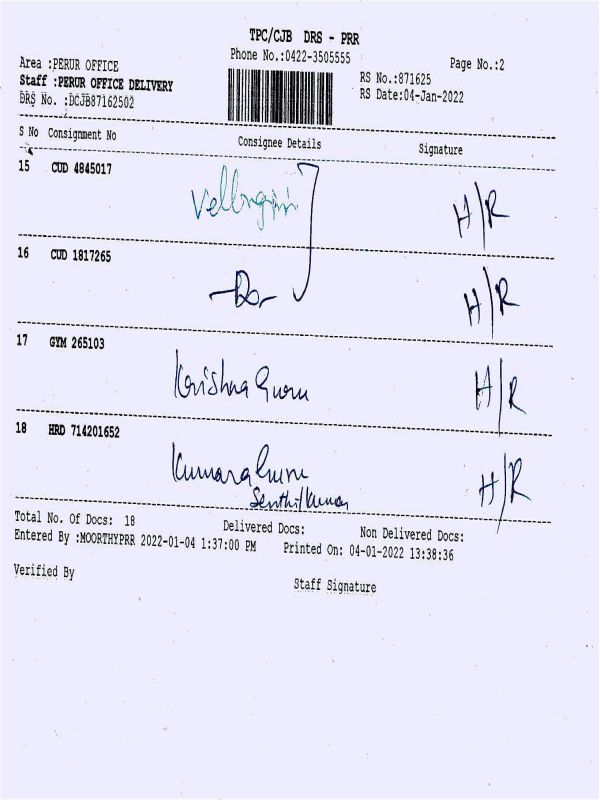 TPC/CJB DRS - PRR
Phone No.:0422-3505555
Page No.:2
Area :PERUR OFFICE
Staff :PERUR OFFICE DELIVERY
DRS No. :DCJB87162502
RS No.:871625
RS Date:04-Jan-2022
S No Consignment No Consignee Details Signature
15 CUD 4845017 Vellingiri H/R
16 CUD 1817265 -Do- H/R
17 GYM 265103 Krishna Guru H/R
18 HRD 714201652 Kumaraguru H/R
Senthilkumar
Total No. Of Docs: 18 Delivered Docs: Non Delivered Docs:
Entered By :MOORTHYPRR 2022-01-04 1:37:00 PM Printed On: 04-01-2022 13:38:36
Verified By Staff Signature